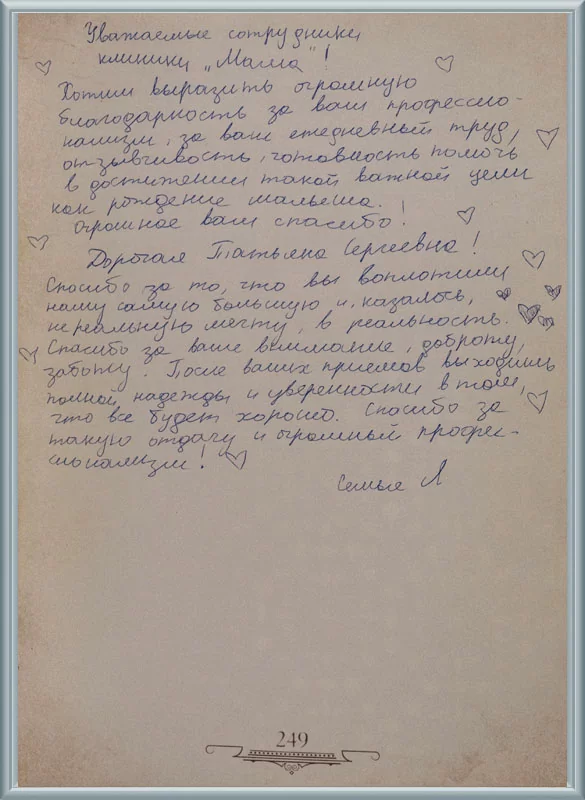 Уважаемые сотрудники
клиники „Мама"!
Хотим выразить огромную
благодарность за ваш профессио-
нализм, за ваш ежедневный труд,
отзывчивость, готовность помочь
в достижении такой важной цели
как рождение малыша.
Огромное вам спасибо!
Дорогая Татьяна Сергеевна!
Спасибо за то, что вы воплотили
нашу самую большую и, казалось,
нереальную мечту, в реальность.
Спасибо за ваше внимание, доброту,
заботу. После ваших приемов выходишь
полной надежды и уверенности в том,
что все будет хорошо. Спасибо за
такую отдачу и огромный профес-
сионализм!
Семья Л
249